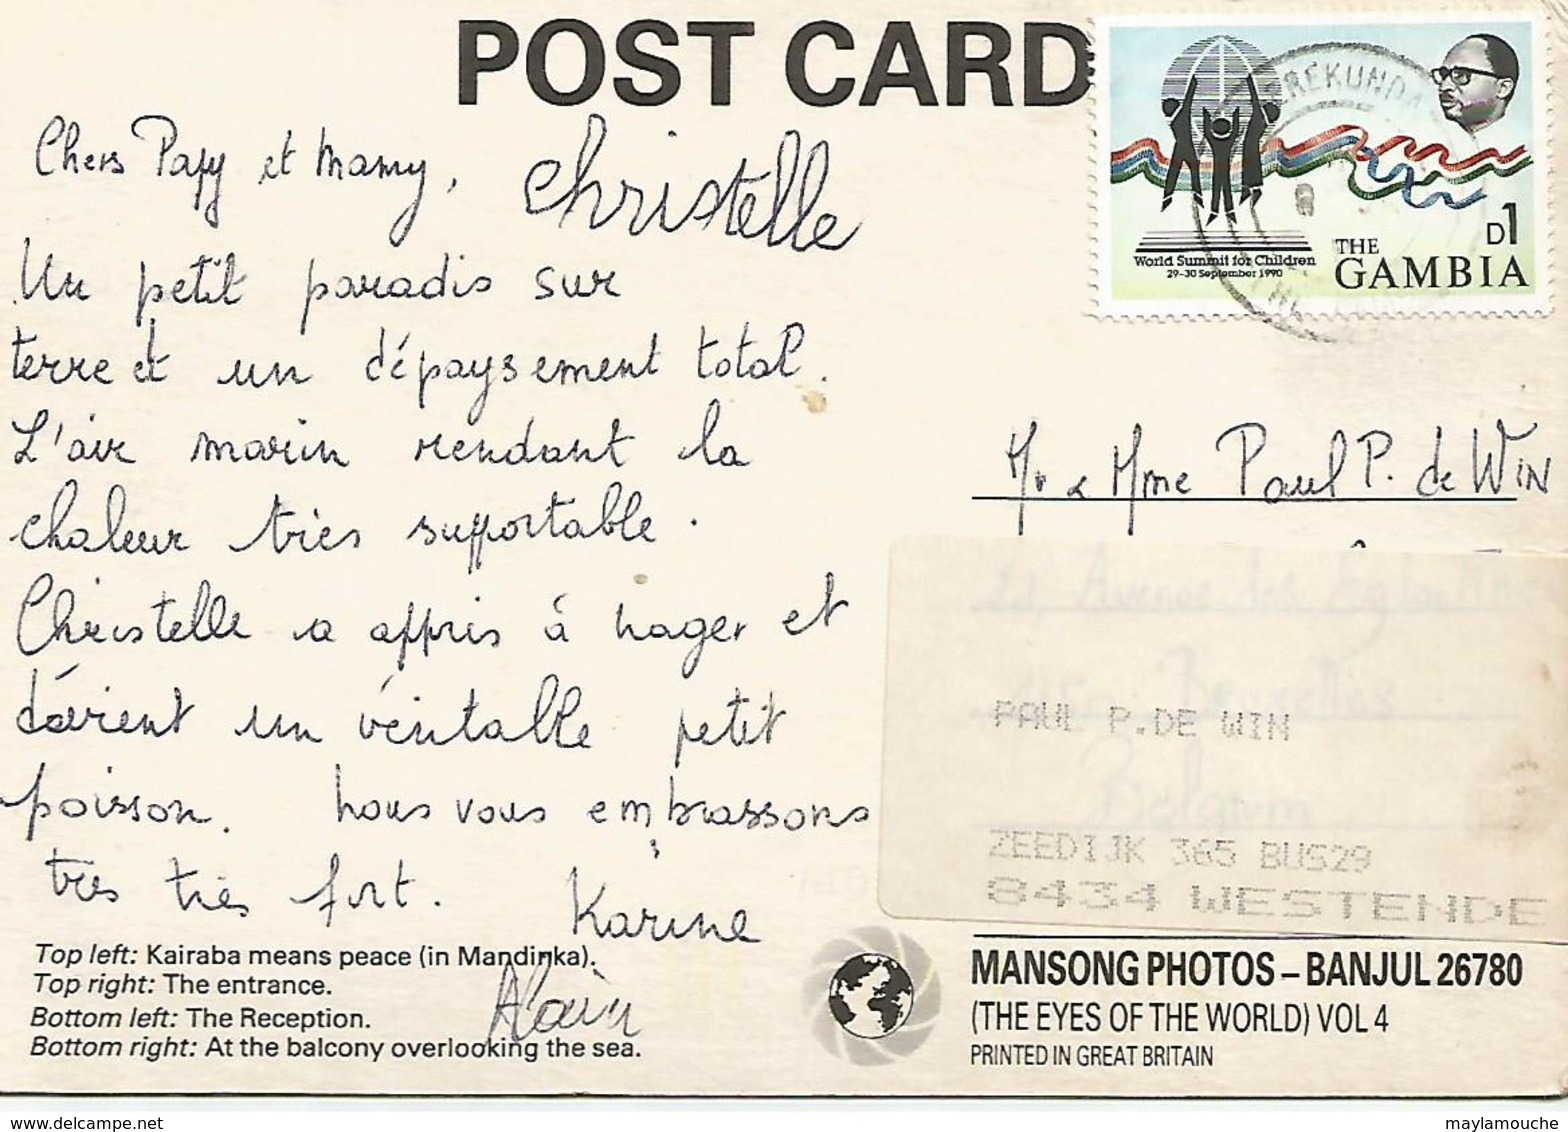 POST CARD
Chers Papy et Mamy,
Christelle
Un petit paradis sur
terre et un dépaysement total.
L'air marin rendant la
chaleur très supportable.
Christelle a appris à nager et
devient un véritable petit
poisson. Nous vous embrassons
très très fort.
Karine
Alain
Top left: Kairaba means peace (in Mandinka).
Top right: The entrance.
Bottom left: The Reception.
Bottom right: At the balcony overlooking the sea.
World Summit for Children
29-30 September 1990
D1
THE
GAMBIA
Mr & Mme Paul P. de WIN
Avenue des
Bruxelles
Belgium
PAUL P.DE WIN
ZEEDIJK 365 BUS29
8434 WESTENDE
MANSONG PHOTOS – BANJUL 26780
(THE EYES OF THE WORLD) VOL 4
PRINTED IN GREAT BRITAIN
maylamouche